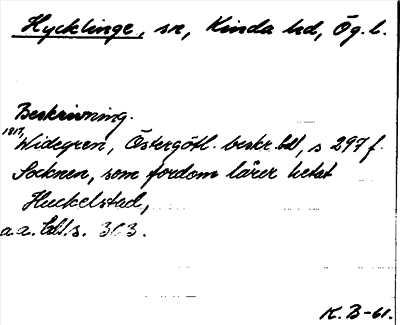 Hycklinge, sn, Kinda hd, Ög. l.
Beskrivning.
1817,
Widegren, Östergötl. beskr. bd 1, s 297 f.
Socknen, som fordom lärer hetat
Huckelstad,
a.a. bd 1. s. 303.
K. B-61.